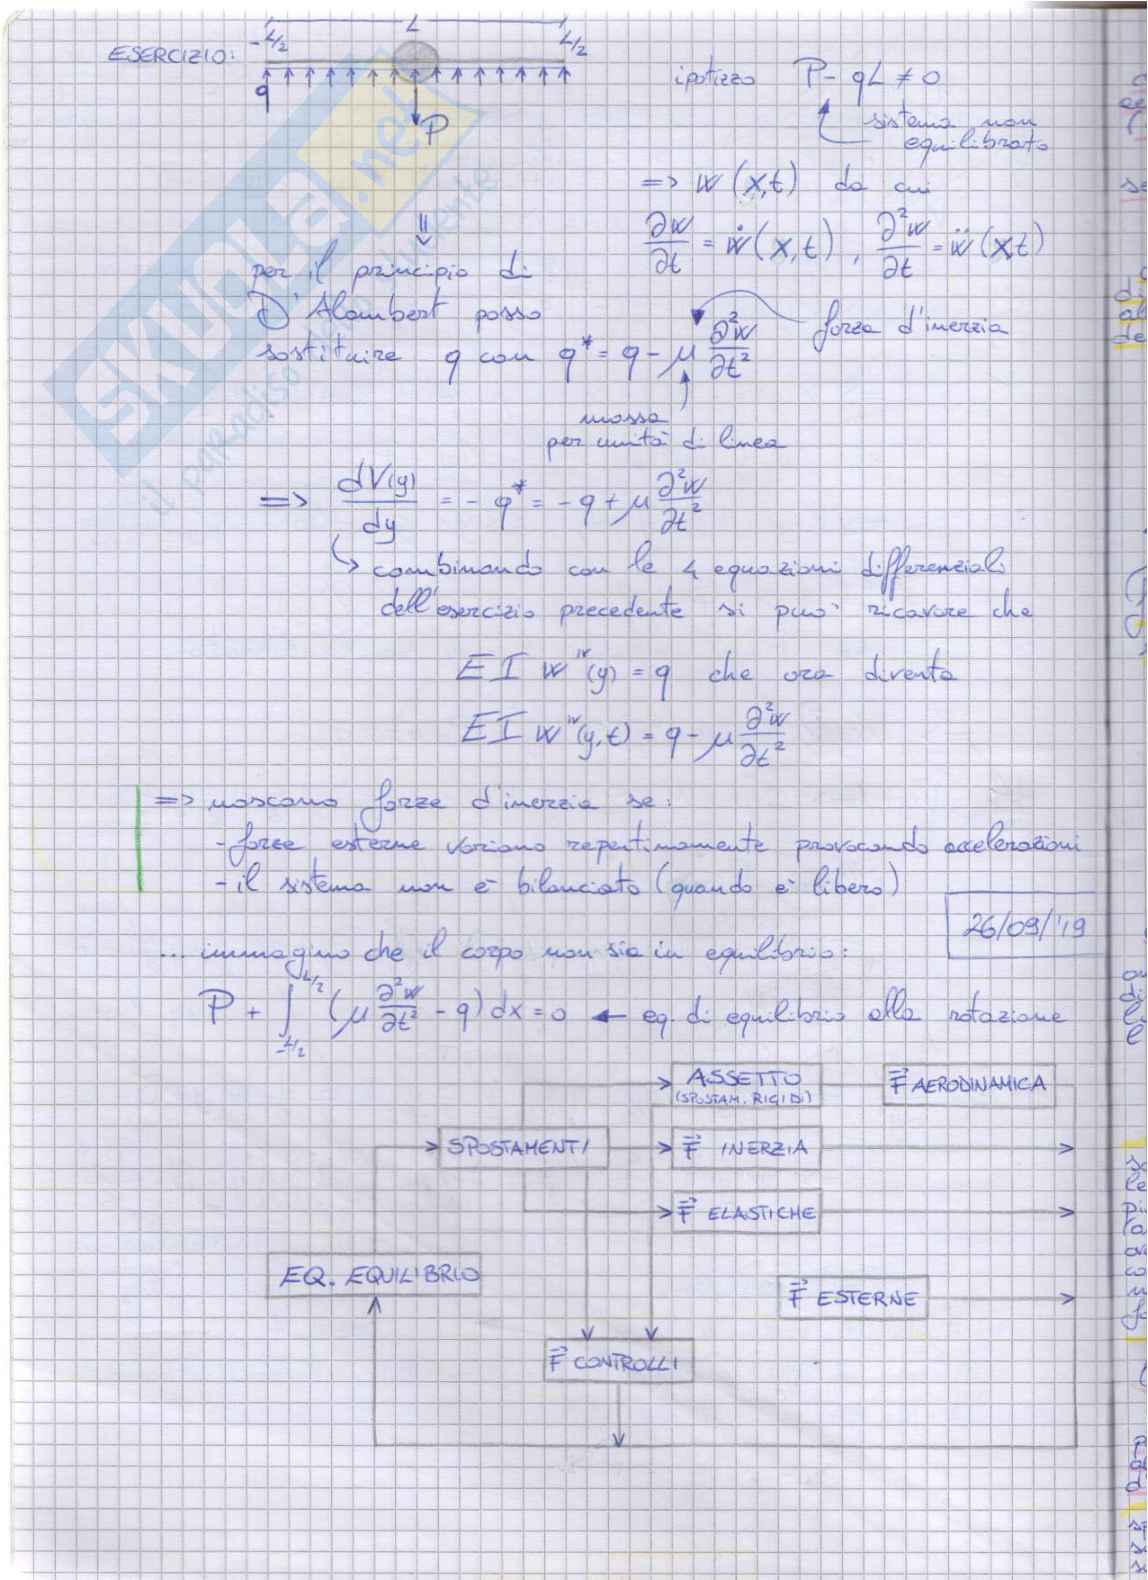 ESERCIZIO:
-L/2 L L/2
q
P
ipotizzo P - qL ≠ 0
sistema non
equilibrato
=> w (x,t) da cui
∂w/∂t = ẇ(x,t) , ∂²w/∂t² = ẅ(x,t)
per il principio di
D'Alambert posso
sostituire q con q* = q - μ ∂²w/∂t²
forza d'inerzia
massa
per unità di linea
=> dV(y)/dy = - q* = - q + μ ∂²w/∂t²
combinando con le 4 equazioni differenziali
dell'esercizio precedente si può ricavare che
EI wᴵⱽ(y) = q che ora diventa
EI wᴵⱽ(y,t) = q - μ ∂²w/∂t²
=> nascono forze d'inerzia se:
- forze esterne variano repentinamente provocando accelerazioni
- il sistema non è bilanciato (quando è libero)
26/09/'19
... immagino che il corpo non sia in equilibrio:
P + ∫_{-L/2}^{L/2} (μ ∂²w/∂t² - q) dx = 0 ← eq. di equilibrio alla rotazione
ASSETTO
(SPOSTAM. RIGIDI)
F⃗ AERODINAMICA
SPOSTAMENTI
F⃗ INERZIA
F⃗ ELASTICHE
EQ. EQUILIBRIO
F⃗ ESTERNE
F⃗ CONTROLLI
SKUOLA.net
il paradiso dello studente